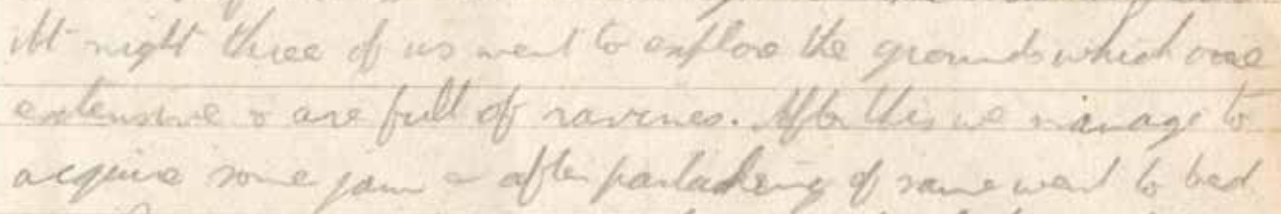 At night three of us went to explore the grounds which are
extensive & are full of ravines. After this we manage to
acquire some jam & after partaking of same went to bed